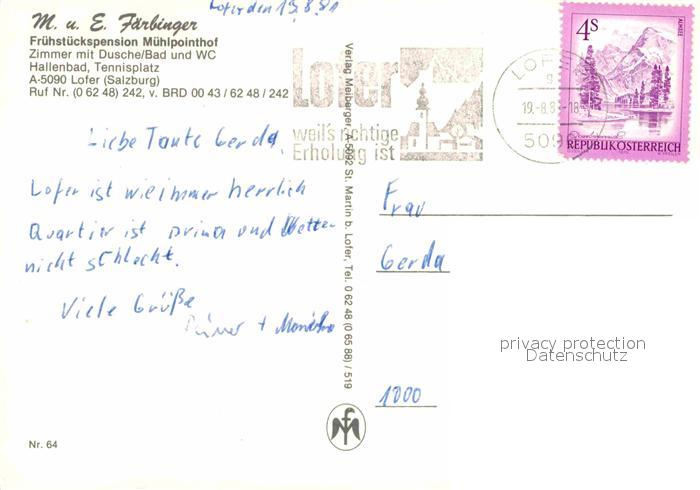 Lofer den 19.8.81
M. u. E. Färbinger
Frühstückspension Mühlpointhof
Zimmer mit Dusche/Bad und WC
Hallenbad, Tennisplatz
A-5090 Lofer (Salzburg)
Ruf Nr. (0 62 48) 242, v. BRD 00 43 / 62 48 / 242
Liebe Tante Gerda,
Lofer ist wie immer herrlich
Quartier ist prima und Wetter
nicht schlecht.
Viele Grüße
+
Nr. 64
Verlag Meiberger, A-5092 St. Martin b. Lofer, Tel. 0 62 48 (0 65 88) / 519
Lofer
weil's richtige
Erholung ist
LOFER
19.-8.8
509
4S
ALMSEE
REPUBLIK ÖSTERREICH
Frau
Gerda
1000
privacy protection
Datenschutz